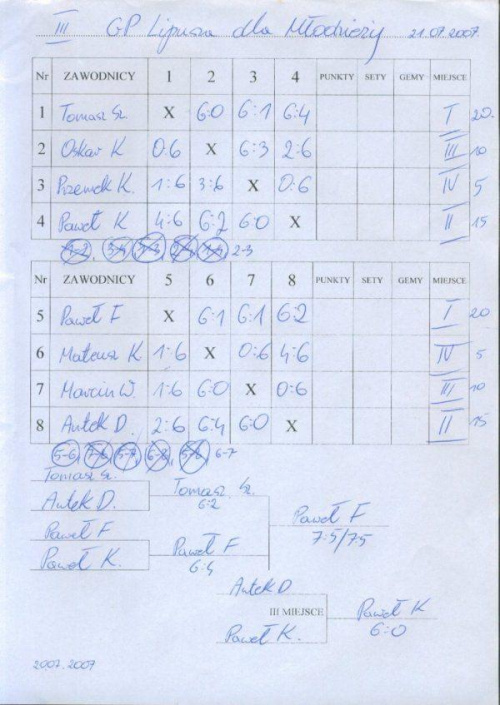 III GP Lipusza dla Młodzieży 21.07.2007.
Nr ZAWODNICY 1 2 3 4 PUNKTY SETY GEMY MIEJSCE
1 Tomasz Sz. X 6:0 6:1 6:4 I 20.
2 Oskar K 0:6 X 6:3 2:6 III 10
3 Przemek K. 1:6 3:6 X 0:6 IV 5
4 Paweł K 4:6 6:2 6:0 X II 15
2-3
Nr ZAWODNICY 5 6 7 8 PUNKTY SETY GEMY MIEJSCE
5 Paweł F X 6:1 6:1 6:2 I 20
6 Mateusz K 1:6 X 0:6 4:6 IV 5
7 Marcin W. 1:6 6:0 X 0:6 III 10
8 Antek D. 2:6 6:4 6:0 X II 15
5-6, 6-7
Tomasz Sz.
Antek D.
Tomasz Sz.
6:2
Paweł F
Paweł K.
Paweł F
6:4
Paweł F
7:5/7:5
Antek D
III MIEJSCE
Paweł K.
Paweł K
6:0
20.07.2007